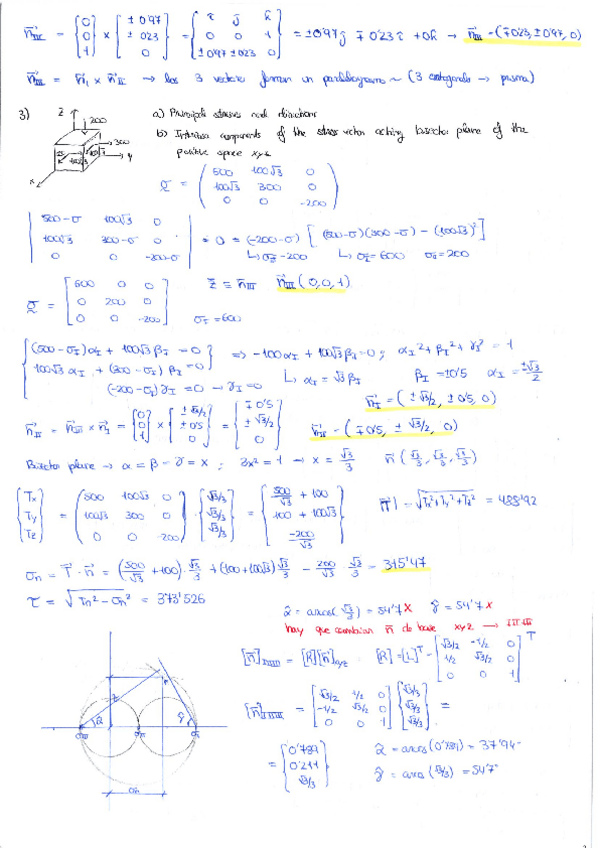 n⃗_III = {0 0 1} × {±0'97 ±0'23 0} = {i j k; 0 0 1; ±0'97 ±0'23 0} = ±0'97j ∓0'23i + 0k → n⃗_III = (∓0'23, ±0'97, 0)
n⃗_III = n⃗_I × n⃗_II → los 3 vectores forman un ~ (3 ortogonals → prisma)
3) z 200 300 y x
a) Principals stresses and directions
b) Intrinsic components of the stress vector acting bisector plane of the
positive space xyz
σ = (500 100√3 0; 100√3 300 0; 0 0 -200)
|500-σ 100√3 0; 100√3 300-σ 0; 0 0 -200-σ| = 0 = (-200-σ) [(500-σ)(300-σ) - (100√3)²]
↳ σ_III = -200 ↳ σ_I = 600 σ_II = 200
σ = [600 0 0; 0 200 0; 0 0 -200] z ≡ n⃗_III n⃗_III (0,0,1)
σ_I = 600
{(500-σ_I)α_I + 100√3 β_I = 0
100√3 α_I + (300-σ_I) β_I = 0
(-200-σ_I) γ_I = 0 → γ_I = 0} => -100α_I + 100√3 β_I = 0; α_I² + β_I² + γ_I² = 1
↳ α_I = √3 β_I β_I = ±0'5 α_I = ±√3/2
n⃗_I = (±√3/2, ±0'5, 0)
n⃗_II = n⃗_III × n⃗_I = {0 0 1} × {±√3/2 ±0'5 0} = {∓0'5 ±√3/2 0} n⃗_II = (∓0'5, ±√3/2, 0)
Bisector plane → α = β = γ = x; 3x² = 1 → x = √3/3 n⃗ (√3/3, √3/3, √3/3)
{Tx Ty Tz} = (500 100√3 0; 100√3 300 0; 0 0 -200) · {√3/3 √3/3 √3/3} = {500/√3 + 100; 100 + 100√3; -200/√3} |T⃗| = √(Tx² + Ty² + Tz²) = 488'92
σn = T⃗ · n⃗ = (500/√3 + 100) · √3/3 + (100 + 100√3) √3/3 - 200/√3 √3/3 = 315'47
τ = √(Tn² - σn²) = 373'526
α̂ = arcos(√3/3) = 54'7 X γ̂ = 54'7 X
hay que cambiar n⃗ de base xyz → I II III
[n⃗]_I II III = [R][n⃗]_xyz [R] = [L]^T = [√3/2 -1/2 0; 1/2 √3/2 0; 0 0 1]^T
[n⃗]_I II III = [√3/2 1/2 0; -1/2 √3/2 0; 0 0 1] {√3/3 √3/3 √3/3} =
= {0'789 0'211 √3/3} α̂ = arcos (0'789) = 37'94°
γ̂ = arcos (√3/3) = 54'7°